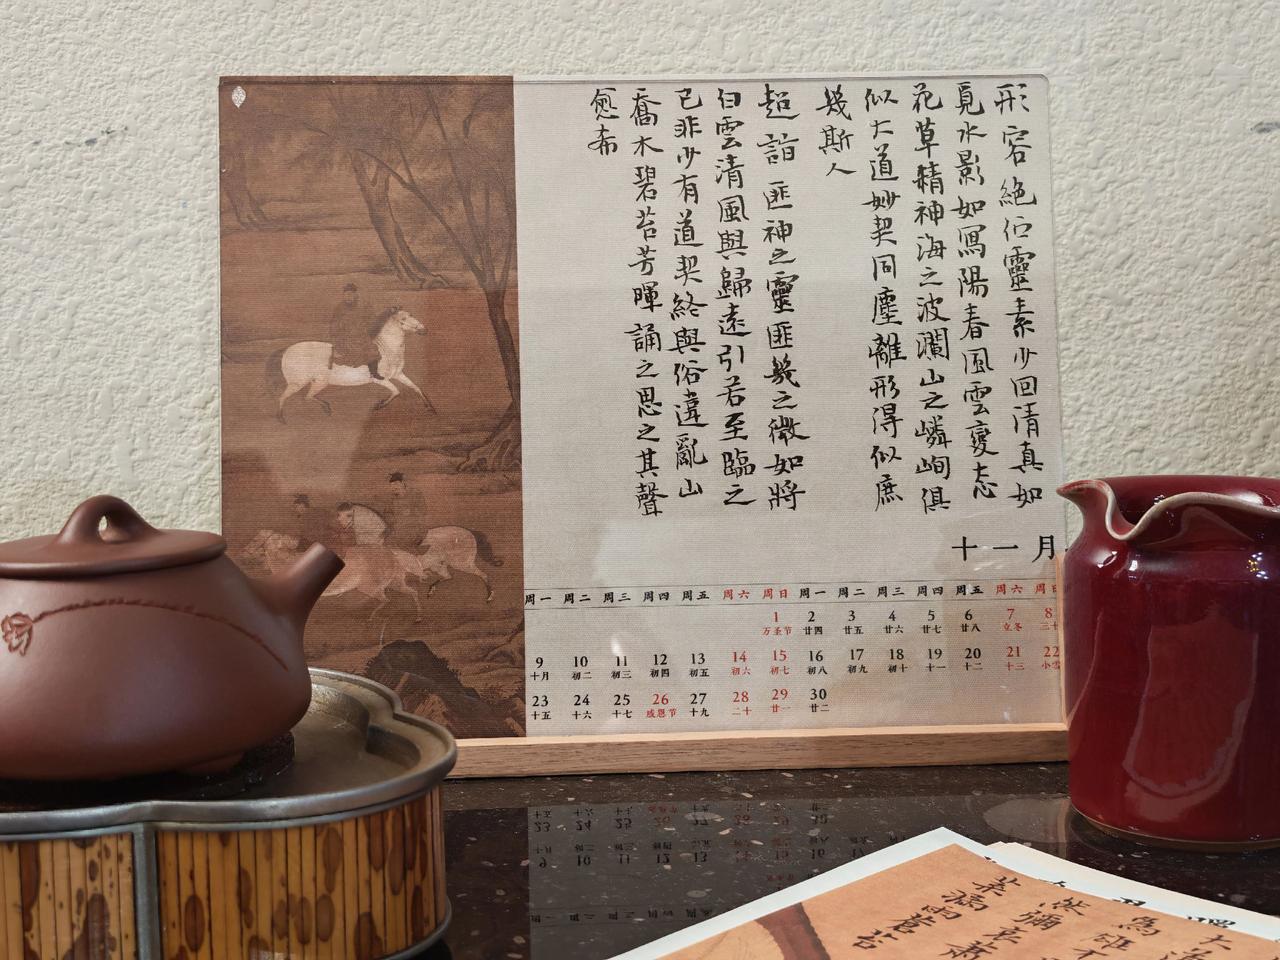 形容絶佇靈素少回清真如
覓水影如寫陽春風雲變态
花草精神海之波瀾山之嶙峋俱
似大道妙契同塵離形得似庶
幾斯人
超詣匪神之靈匪幾之微如將
白雲清風與歸遠引若至臨之
已非少有道契終與俗違亂山
喬木碧苔芳暉誦之思之其聲
愈希
十一月
周一 周二 周三 周四 周五 周六 周日 周一 周二 周三 周四 周五 周六 周日
1 2 3 4 5 6 7 8
万圣节 廿四 廿五 廿六 廿七 廿八 立冬 三十
9 10 11 12 13 14 15 16 17 18 19 20 21 22
十月 初二 初三 初四 初五 初六 初七 初八 初九 初十 十一 十二 十三 小雪
23 24 25 26 27 28 29 30
十五 十六 十七 感恩节 十九 二十 廿一 廿二
大
馬雄
滿雨蒼苔